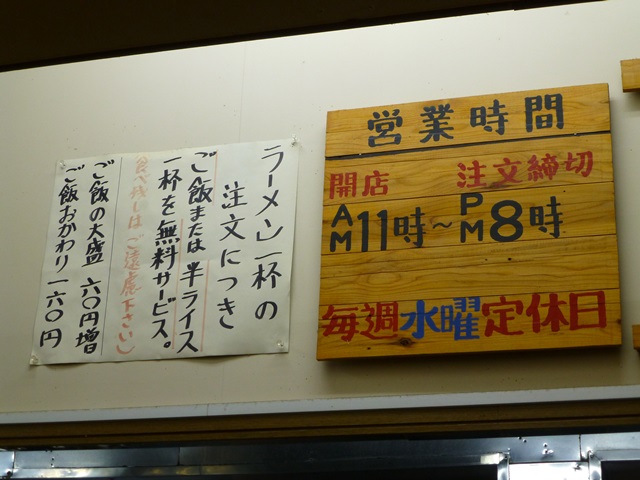 ラーメン一杯の
注文につき
ご飯または半ライス
一杯を無料サービス。
(食べ残しはご遠慮下さい)
ご飯の大盛 六〇円増
ご飯おかわり 一六〇円
営業時間
開店 注文締切
AM11時~PM8時
毎週水曜定休日